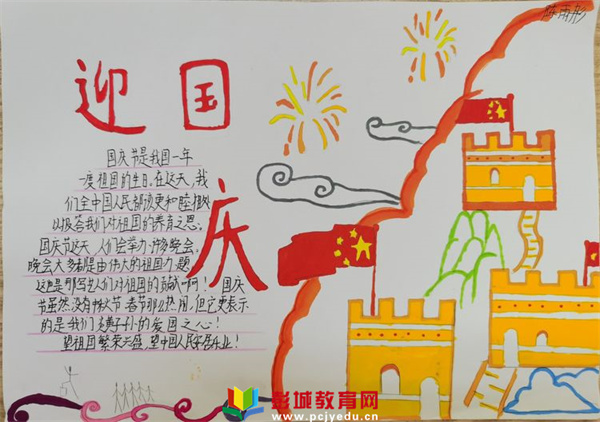 陈雨彤
迎国
庆
国庆节是我国一年
一度祖国的生日。在这天，我
们全中国人民都该更和睦
以报答我们对祖国的养育之恩。
国庆节这天，人们会举办许多晚会。
晚会大多都是由伟大的祖国为题，
这也是那写艺人们对祖国的 啊！国庆
节虽然没有 节春节那么热闹，但它更表示
的是我们炎黄子孙的爱国之心！
望祖国繁荣昌盛，望中国人民安居乐业！
彭城教育网
www.pcjyedu.cn